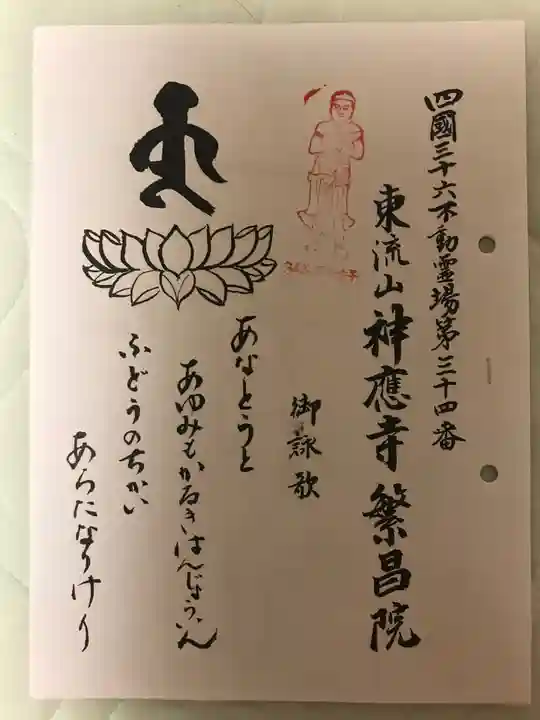 四國三十六不動霊場第三十四番
東流山神應寺繁昌院
御詠歌
あなとうと
あゆみもかるきはんじょういん
ふどうのちかい
あらたなりけり